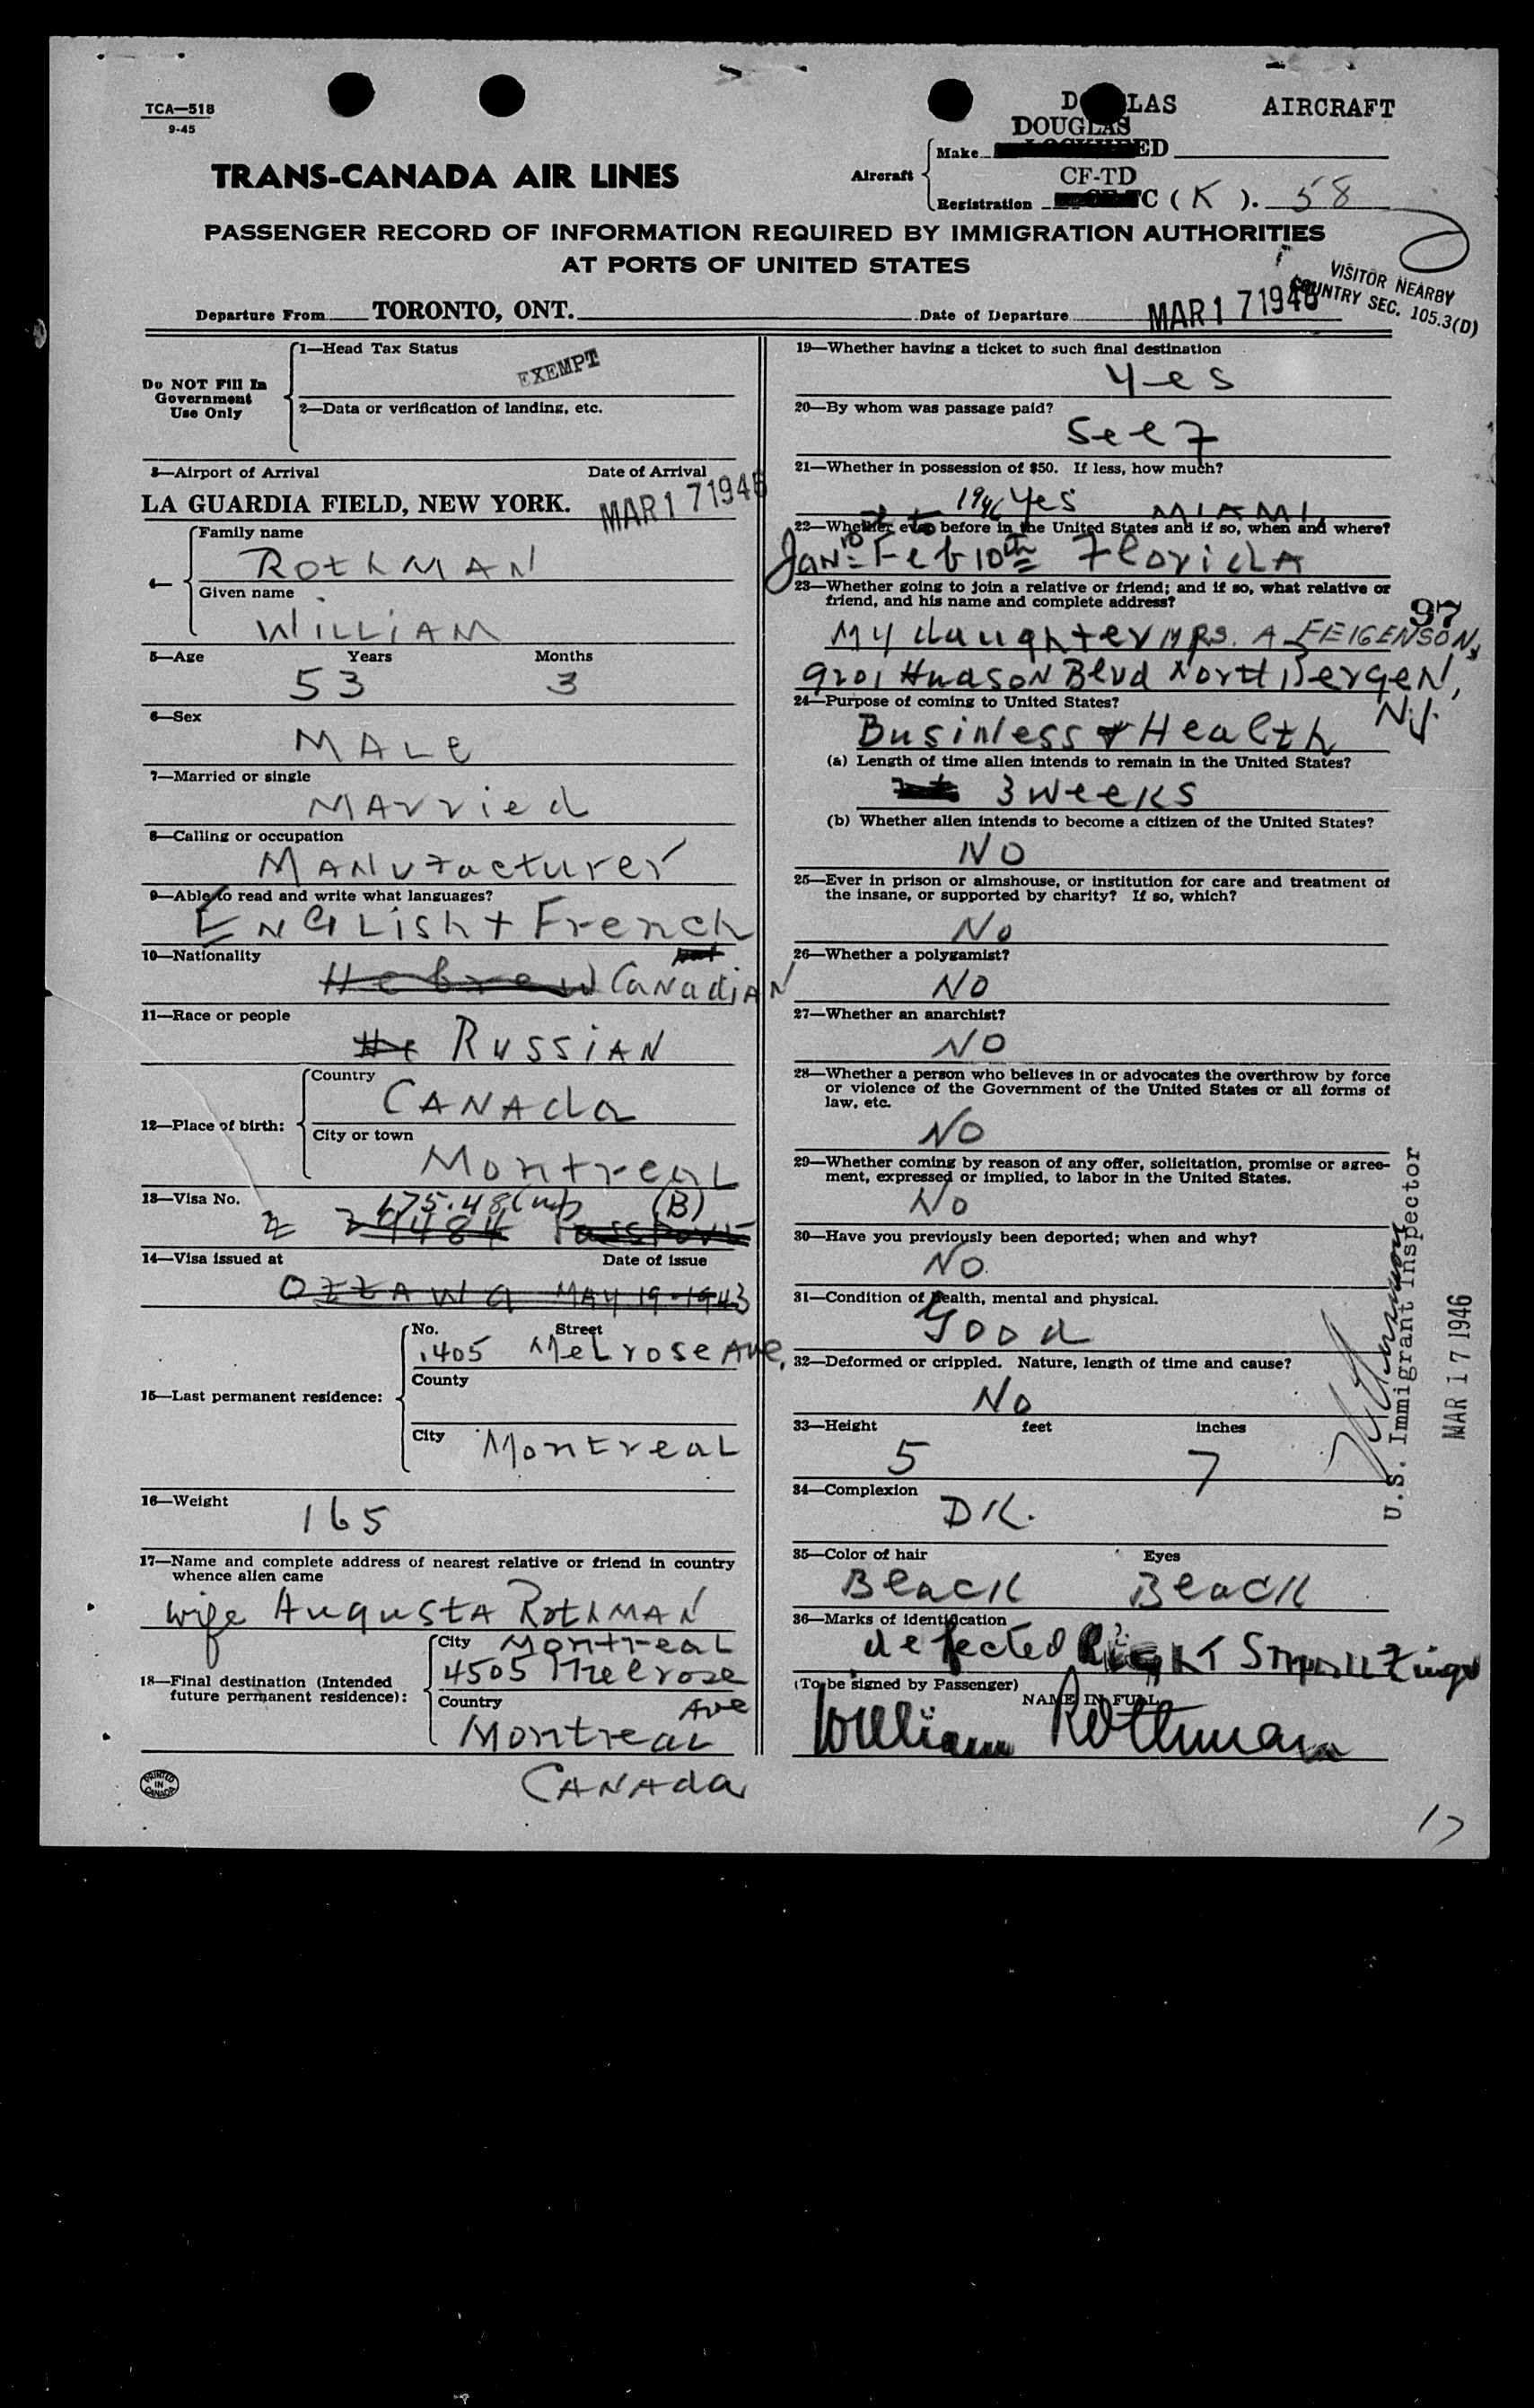 TCA—518
9-45
DOUGLAS AIRCRAFT
DOUGLAS
TRANS-CANADA AIR LINES
Aircraft
Make
CF-TD
Registration C ( K ). 58
PASSENGER RECORD OF INFORMATION REQUIRED BY IMMIGRATION AUTHORITIES
AT PORTS OF UNITED STATES
VISITOR NEARBY
COUNTRY SEC. 105.3(D)
Departure From TORONTO, ONT. Date of Departure MAR 17 1946
Do NOT Fill In
Government
Use Only
1—Head Tax Status
EXEMPT
2—Data or verification of landing, etc.
3—Airport of Arrival Date of Arrival
LA GUARDIA FIELD, NEW YORK. MAR 17 1946
4—
Family name
ROthMAN
Given name
WILLiAM
5—Age Years Months
53 3
6—Sex
MALe
7—Married or single
MArried
8—Calling or occupation
MANufacturer
9—Able to read and write what languages?
ENGLish + French
10—Nationality
Hebrew CaNadiAN
11—Race or people
He RussiAN
12—Place of birth:
Country
CANAda
City or town
MontreaL
13—Visa No.
175.48 (B)
29484 PassPort
14—Visa issued at Date of issue
OttAwa MAY 19-1943
15—Last permanent residence:
No. Street
.405 MeLrose Ave,
County
City MontreaL
16—Weight
165
17—Name and complete address of nearest relative or friend in country
whence alien came
wife AugustA RothMAN
18—Final destination (Intended
future permanent residence):
City MontreaL
4505 Melrose
Country Ave
MontreaL
CANAda
PRINTED
IN
CANADA
19—Whether having a ticket to such final destination
Yes
20—By whom was passage paid?
SeLf
21—Whether in possession of $50. If less, how much?
1946 Yes MIAMI
22—Whether ever before in the United States and if so, when and where?
JaN. 10 Feb 10th FloridA
23—Whether going to join a relative or friend; and if so, what relative or
friend, and his name and complete address?
97
My daughter MRS. A FEIGENSON,
9201 HudsoN Blvd North BergeN,
N.J.
24—Purpose of coming to United States?
Business & Health
(a) Length of time alien intends to remain in the United States?
3 weeks
(b) Whether alien intends to become a citizen of the United States?
NO
25—Ever in prison or almshouse, or institution for care and treatment of
the insane, or supported by charity? If so, which?
No
26—Whether a polygamist?
NO
27—Whether an anarchist?
NO
28—Whether a person who believes in or advocates the overthrow by force
or violence of the Government of the United States or all forms of
law, etc.
NO
29—Whether coming by reason of any offer, solicitation, promise or agree-
ment, expressed or implied, to labor in the United States.
No
30—Have you previously been deported; when and why?
NO.
31—Condition of health, mental and physical.
Good
32—Deformed or crippled. Nature, length of time and cause?
No
33—Height feet inches
5 7
34—Complexion
DK.
35—Color of hair Eyes
BLack BLack
36—Marks of identification
defected RiGhT SmaLL Finger
(To be signed by Passenger)
NAME IN FULL
William Rothman
U.S. Immigrant Inspector
MAR 17 1946
17